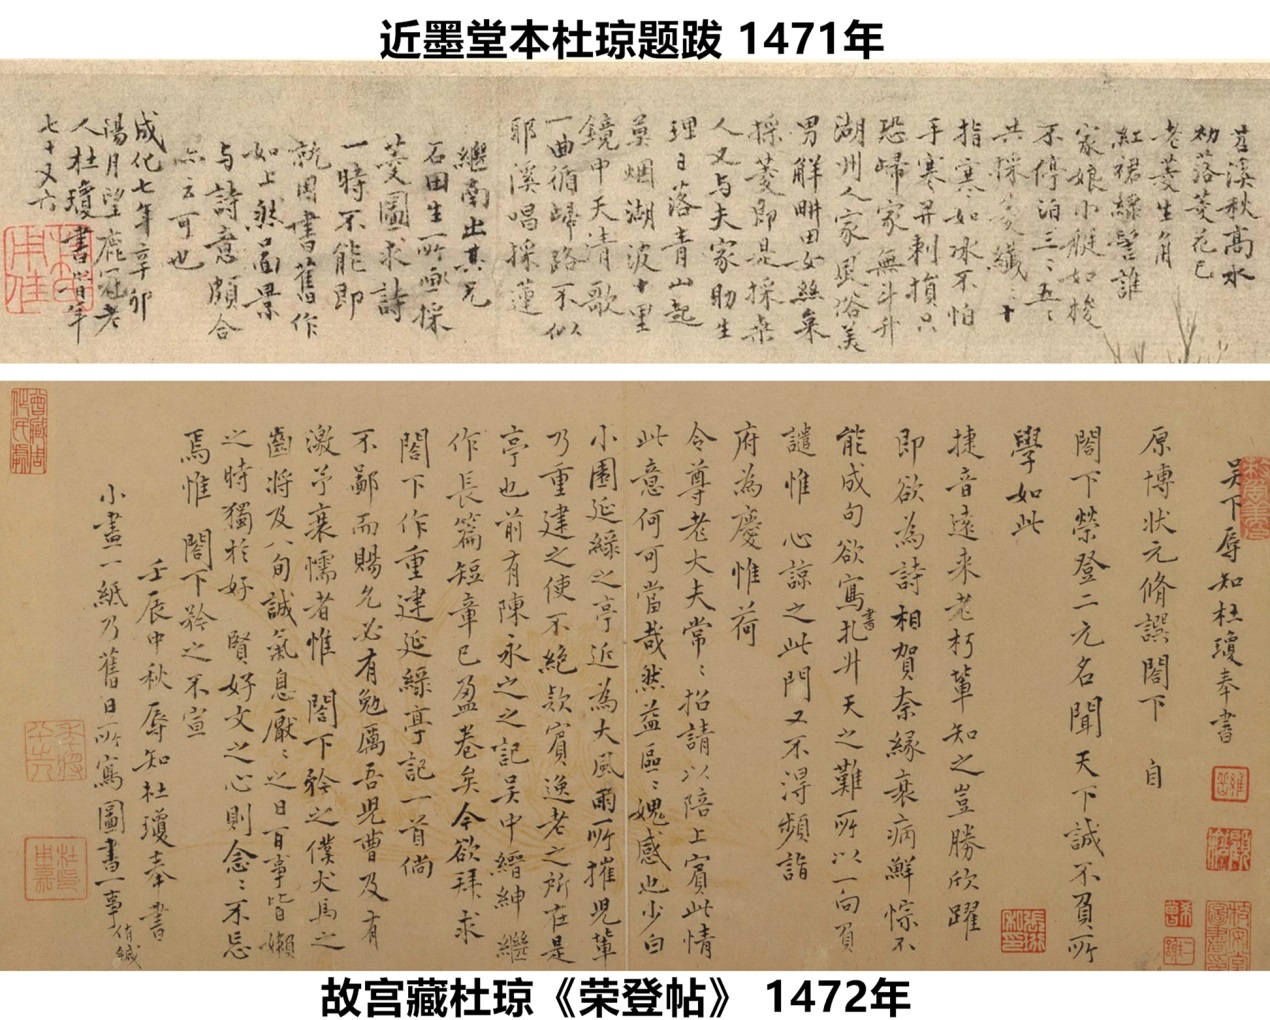 近墨堂本杜琼题跋 1471年
苕溪秋高水
初落菱花已
老菱生角
紅裙綠髻誰
家娘小艇如梭
不停泊三三五五
共採菱纖纖十
指寒如冰不怕
手寒并刺損只
恐歸家無斗升
湖州人家風俗美
男解畊田女絲枲
採菱即是採桑
人又与夫家助生
理日落青山起
莫烟湖波十里
鏡中天清歌
一曲循歸路不似
耶溪唱採蓮
繼南出其兄
石田生所畫採
菱圖求詩
一時不能即
就因書舊作
如上然畐景
与詩意頗合
亦云可也
成化七年辛卯
湯月望鹿冠老
人杜瓊書當年
七十又六
吳下辱知杜瓊奉書
原博狀元脩譔閤下 自
閤下榮登二元名聞天下誠不負所
學如此
捷音遠来老朽輩知之豈勝欣躍
即欲為詩相賀奈緣衰病鮮悰不
能成句欲寫書扎升天之難所以一向負
譴惟心諒之此門又不得頻詣
府為慶惟荷
令尊老大夫常常招請以陪上賓此情
此意何可當哉然益區區媿感也少白
小圃延綠之亭近為大風雨所摧児輩
乃重建之使不絕欵賓逸老之所在是
亭也前有陳永之之記吴中縉紳繼
作長篇短章已盈卷矣今欲拜求
閤下作重建延綠亭記一首倘
不鄙而賜允必有勉厲吾児曹及有
激予衰懦者惟 閤下矜之僕犬馬之
齒將及八旬誠氣息厭厭之日百事皆嬾
之時獨於好 賢好文之心則念念不忘
焉惟 閤下矜之不宣
壬辰中秋辱知杜瓊奉書
小畫一紙乃舊日所寫圖書一事侑緘
故宫藏杜琼《荣登帖》 1472年